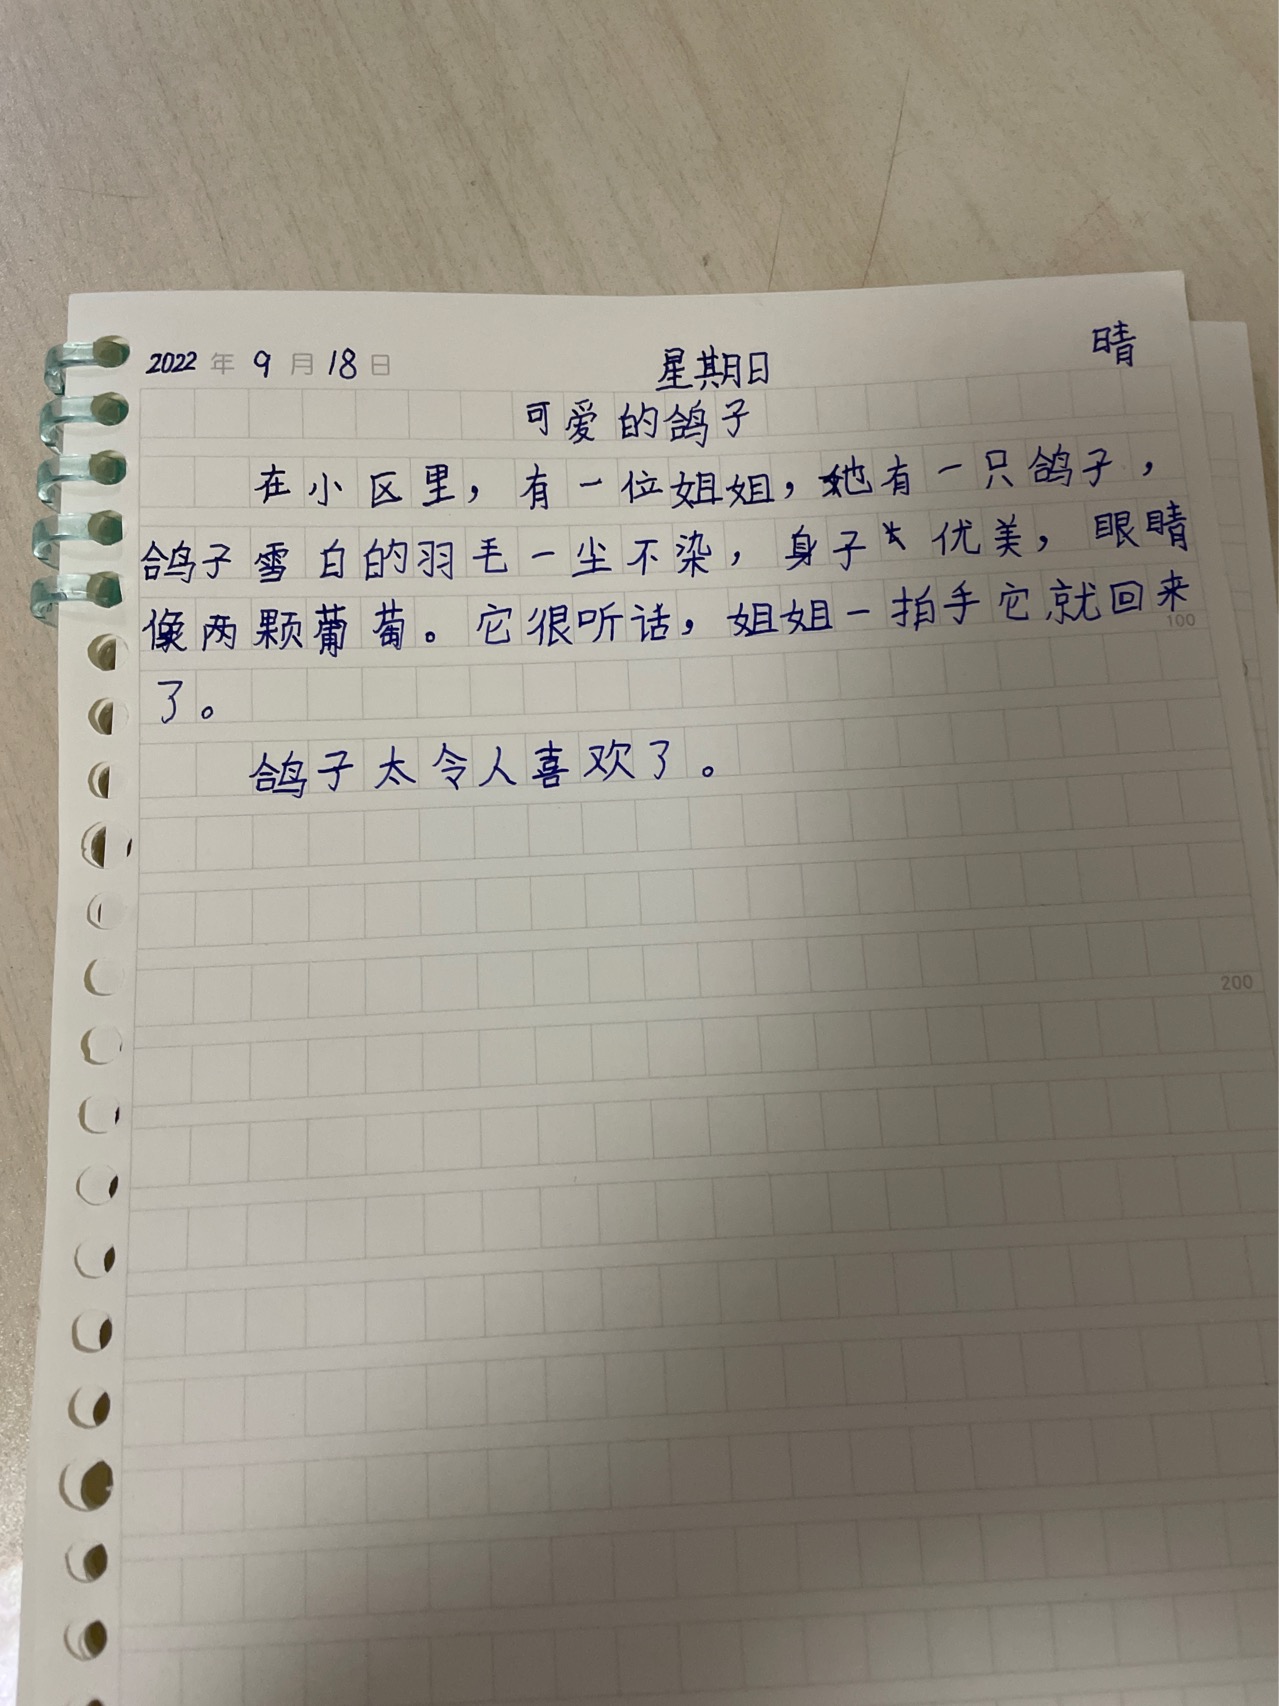 2022 年 9 月 18 日 星期日 晴
可爱的鸽子
在小区里，有一位姐姐，她有一只鸽子，
鸽子雪白的羽毛一尘不染，身子优美，眼睛
像两颗葡萄。它很听话，姐姐一拍手它就回来
100
了。
鸽子太令人喜欢了。
200